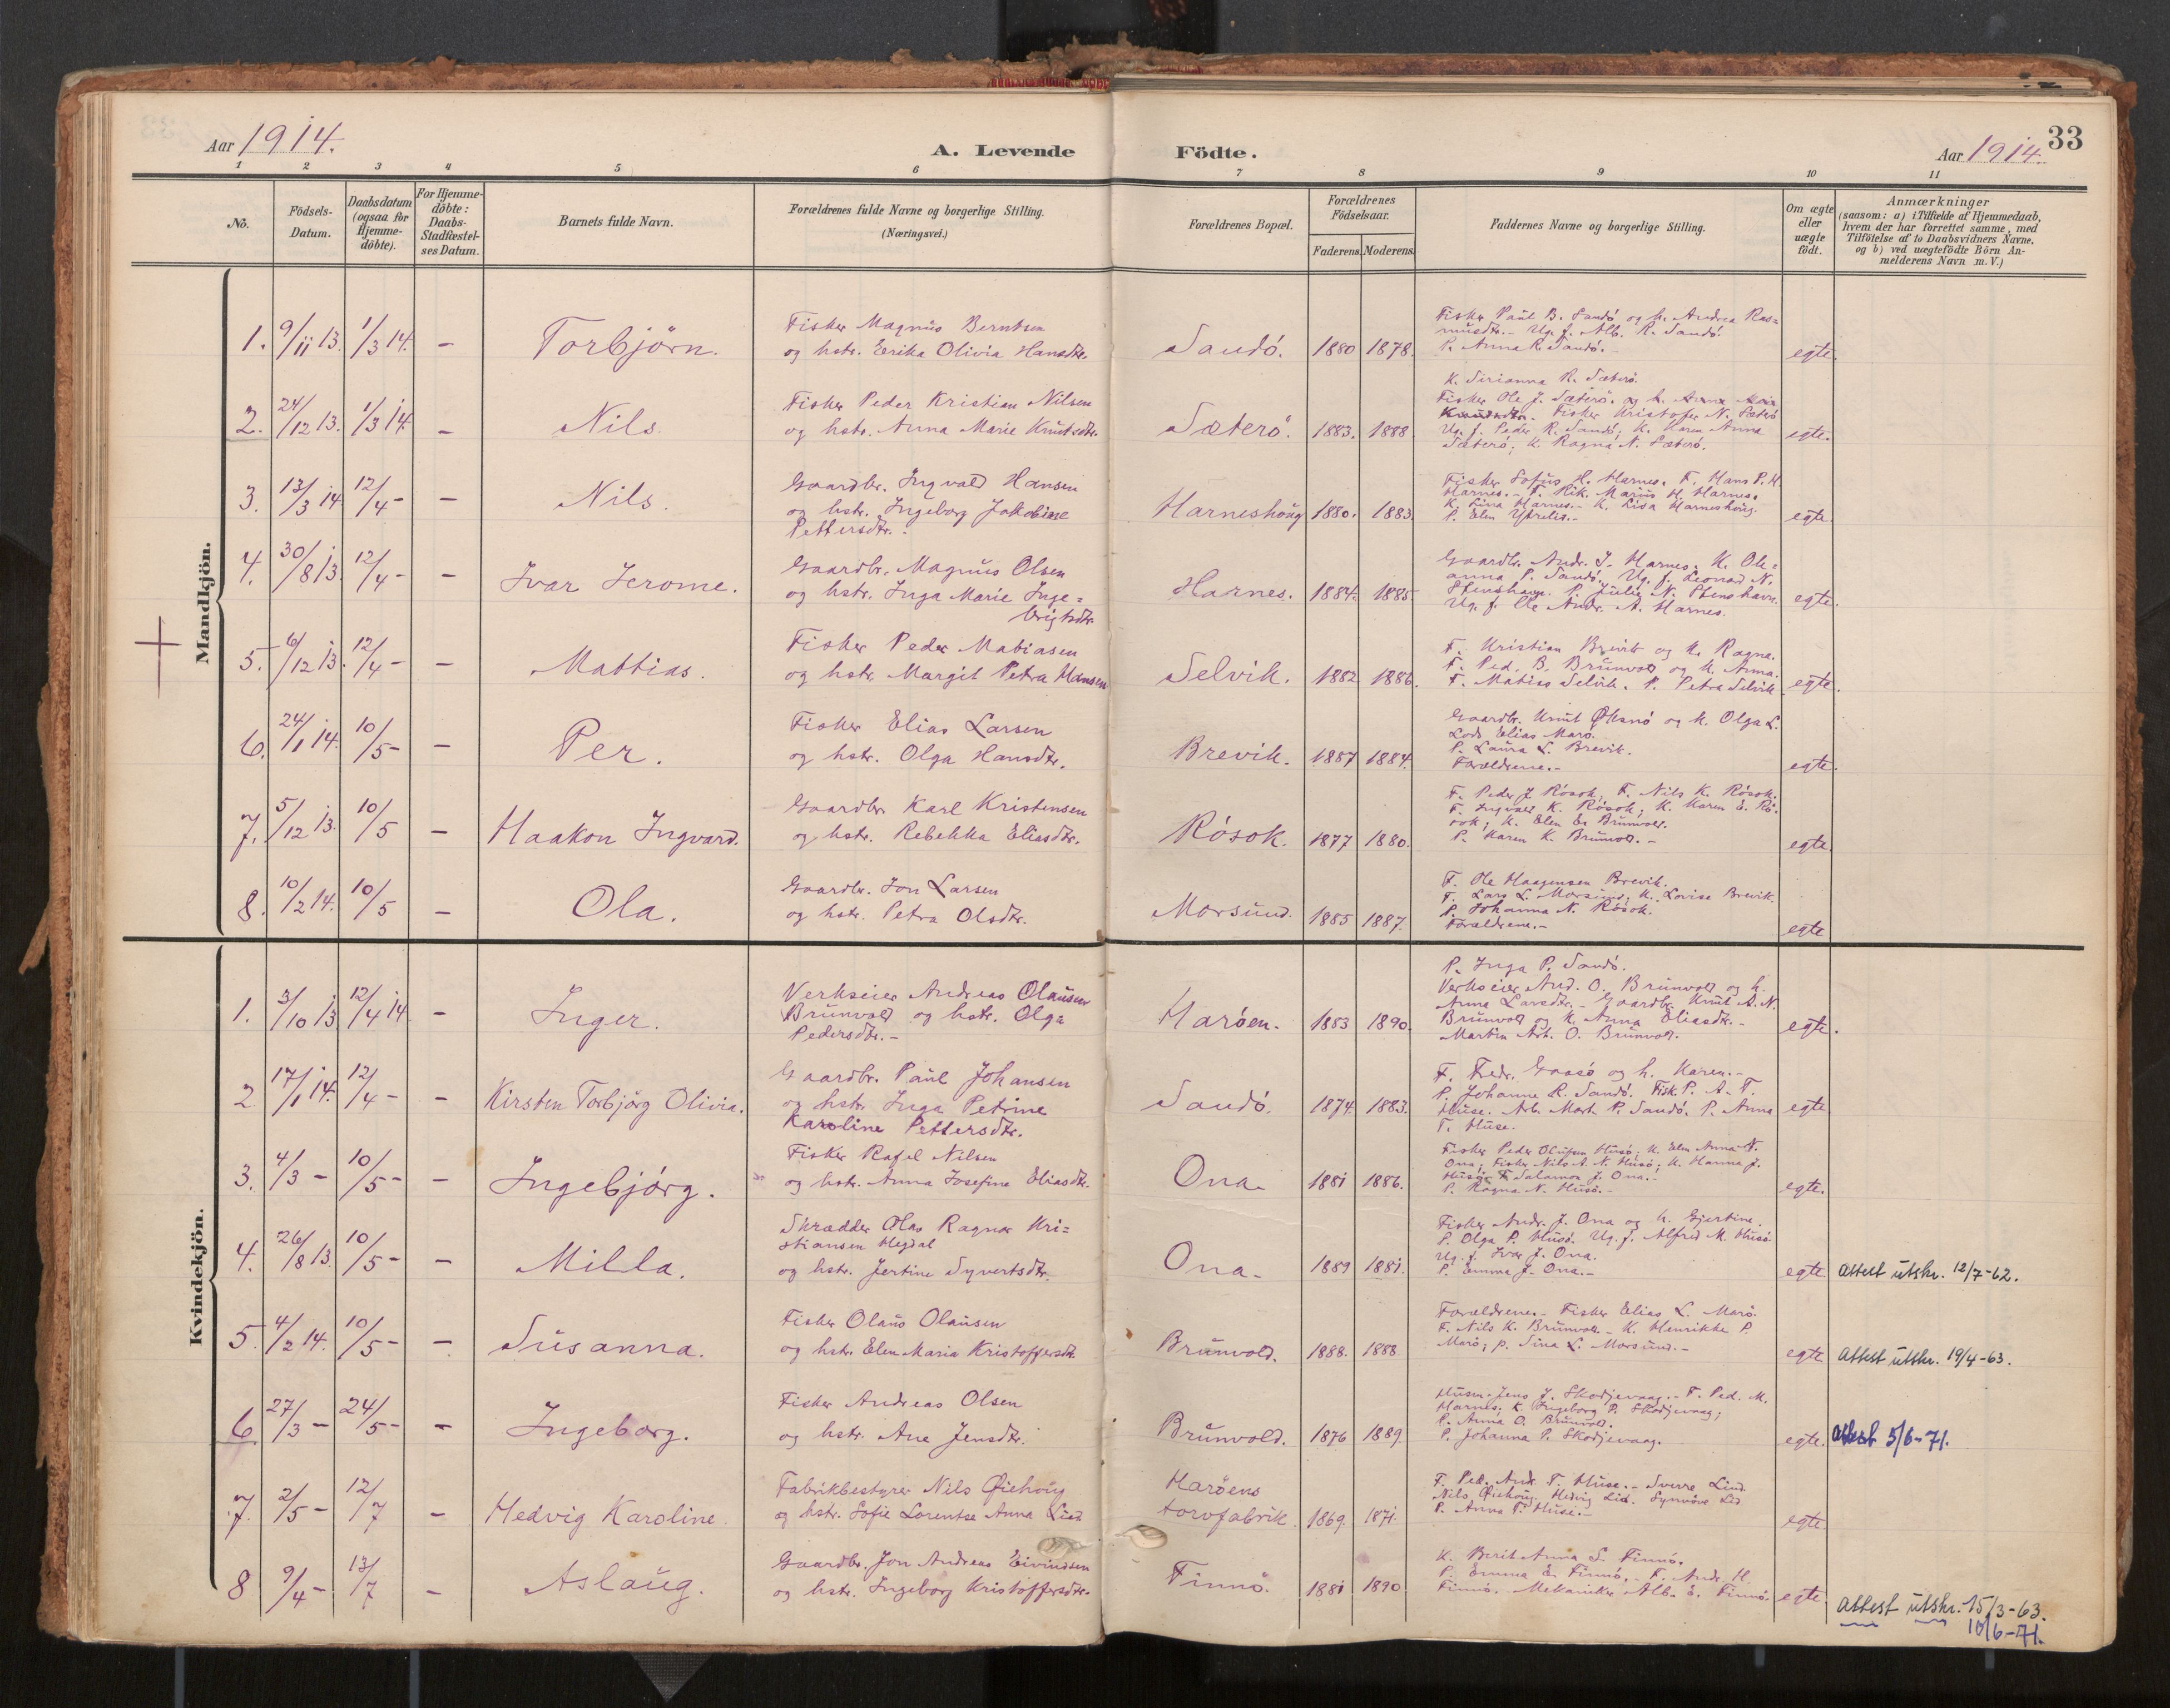 33
Aar 1914.
A. Levende Födte.
Aar 1914.
1 2 3 4 5 6 7 8 9 10 11
No.
Födsels-
Datum.
Daabsdatum
(ogsaa for
Hjemme-
döbte).
For Hjemme-
döbte:
Daabs-
Stadfæstel-
ses Datum.
Barnets fulde Navn.
Forældrenes fulde Navne og borgerlige Stilling.
(Næringsvei.)
Forældrenes Bopæl.
Forældrenes
Födselsaar.
Faderens. Moderens.
Faddernes Navne og borgerlige Stilling.
Om ægte
eller
uægte
födt.
Anmærkninger
(saasom: a) i Tilfælde af Hjemmedaab,
hvem der har forrettet samme, med
Tilföielse af to Daabsvidners Navne.
og b) ved uægtefödte Börn An-
melderens Navn m. V.)
Mandkjön.
1. 9/11 13. 1/3 14. – Torbjörn.
Fisker Magnus Berntsen
og hstr. Erika Olivia Hansdtr.
Sandö. 1880 1878.
Fisker Paul B. Sandö og h. Andrea Ras=
musdtr. – Ug. f. Alb. R. Sandö.
P. Anna R. Sandö. –
egte.
2. 24/12 13. 1/3 14. – Nils.
Fisker Peder Kristian Nilsen
og hstr. Anna Marie Knutsdtr.
Sæterö. 1883. 1888.
K. Sirianna R. Sæterö.
Fisker Ole J. Sæterö. og h. Anna
Knudsdtr. Fisker Kristofer N. Sæterö
Ug. f. Peder R. Sandö; K. Karen Anna
Sæterö; K. Ragna N. Sæterö.
egte.
3. 13/3 14. 12/4 – – Nils.
Gaardbr. Ingvald Hansen
og hstr. Ingeborg Jakobine
Pettersdtr.
Harneshoug 1880. 1883.
Fisker Sofus H. Harnes. F. Hans P. H.
Harnes. – F. Rik. Marius H. Harnes.
K. Lina Harnes. – K. Lisa Harneshoug.
P. Elen –
egte.
4. 30/8 13. 12/4 – – Ivar Jerome.
Gaardbr. Magnus Olsen
og hstr. Inga Marie Inge=
brigtsdtr.
Harnes. 1884. 1885
Gaardbr. Andr. I. Harnes. K. Ole=
anna P. Sandö. Ug. f. Leonard N.
Stenshavn. P. Julie N. Stenshavn.
Ug. f. Ole Andr. A. Harnes.
egte.
5. 6/12 13. 12/4 – – Mattias.
Fisker Peder Mabiasen
og hstr. Margit Petra Hansen
Selvik. 1882 1886.
F. Kristian Brevik og K. Ragna.
F. Ped. B. Brunvold og K. Anna.
F. Matias Selvik. P. Petra Selvik
egte.
6. 24/1 14. 10/5 – – Per.
Fisker Elias Larsen
og hstr. Olga Hansdtr.
Brevik. 1887 1884.
Gaardbr. Knut Øksnö og k. Olga L.
Lods Elias Marö.
P. Laura L. Brevik.
Forældrene. –
egte.
7. 5/12 13. 10/5 – Haakon Ingvard.
Gaardbr. Karl Kristensen
og hstr. Rebekka Eliasdtr.
Rösok. 1877 1880.
F. Peder J. Rösok, F. Nils K. Rösok.
F. Ingvald K. Rösok; K. Karen E. Rö=
sok; K. Elen E. Brunvold.
P. Karen K. Brunvold. –
egte.
8. 10/2 14. 10/5 – Ola.
Gaardbr. Jon Larsen
og hstr. Petra Olsdtr.
Morsund. 1885 1887.
F. Ole Haagensen Brevik.
F. Lars L. Morsund; K. Lovise Brevik.
P. Johanna N. Rösok.
Forældrene. –
egte
Kvindekjön.
1. 3/10 13 12/4 14 – Inger.
Verkseier Andreas Olausen
Brunvold og hstr. Olga
Pedersdtr. –
Maröen. 1883 1890.
P. Inga P. Sandö.
Verkseier And. O. Brunvold og h.
Anna Larsdtr. – Gaardbr. Knut A. N.
Brunvold og K. Anna Eliasdtr. –
Martin Arb. O. Brunvold.
egte.
2 17/1 14. 12/4 – – Kirsten Torbjörg Olivia.
Gaardbr. Paul Johansen
og hstr. Inga Petrine
Karoline Pettersdtr.
Sandö. 1874. 1883.
F. Fredr. Gaasö og h. Karen. –
P. Johanne R. Sandö. Fisk. P. A. F.
Huse. Arb. Mart. P. Sandö. P. Anna
T. Huse.
egte
3. 4/3 – 10/5 – – Ingebjörg.
Fisker Rafel Nilsen
og hstr. Anna Josefine Eliasdtr.
Ona – 1881 1886.
Fisker Peder Olufsen Husö; K. Elen Anna N.
Ona; Fisker Nils A. N. Husö; K. Hanna J.
Husö; F. Salamon J. Ona. –
P. Ragna N. Husö. –
egte.
4. 26/8 13. 10/5 – – Milla.
Skrædder Olav Ragnar Kri=
stiansen Megdal
og hstr. Jertine Syvertsdtr.
Ona – 1889 1881.
Fisker Andr. J. Ona og h. Gjertine.
P. Olga P. Husö. Ug. f. Alfred M. Husö
Ug. f. Ivar J. Ona.
P. Emma J. Ona. –
egte attest utskr. 12/7-62.
5. 4/2 14. 10/5 – – Susanna.
Fisker Olaus Olausen
og hstr. Elen Maria Kristoffersdtr.
Brunvold. 1888. 1888
Forældrene. – Fisker Elias L. Marö.
F. Nils K. Brunvold – K. Henrikke P.
Marö; P. Sina L. Morsund. –
egte attest utskr. 19/4-63.
6 27/3 – 24/5 – – Ingeborg.
Fisker Andreas Olsen
og hstr. Ane Jensdtr.
Brunvold. 1876 1889.
Husm. Jens J. Skodjevaag. – F. Ped. M.
Harnes; K. Ingeborg P. Skodjevaag;
P. Anna O. Brunvold.
P. Johanna P. Skodjevaag.
egte. attest 5/6-71.
7. 2/5 – 12/7 – Hedvig Karoline
Fabrikbestyrer Nils Øiehoug
og hstr. Sofie Lorentse Anna Lied
Maröens
torvfabrik. 1869. 1871.
F. Ped. Andr. T. Huse. – Sverre Lind.
Nils Øiehoug. Hedvig Lid. Synnöve Lid
P. Anna T. Huse. –
egte.
8 9/4 – 13/7 – Aslaug.
Gaardbr. Jon Andreas Eivindsen
og hstr. Ingeborg Kristoffersdtr.
Finnö. 1881 1890
K. Berit Anna S. Finnö.
P. Emma E. Finnö. – F. Andr. H.
Finnö. Mekaniker Alb. E. Finnö.
egte. attest utskr. 15/3-63.
16/6-71.